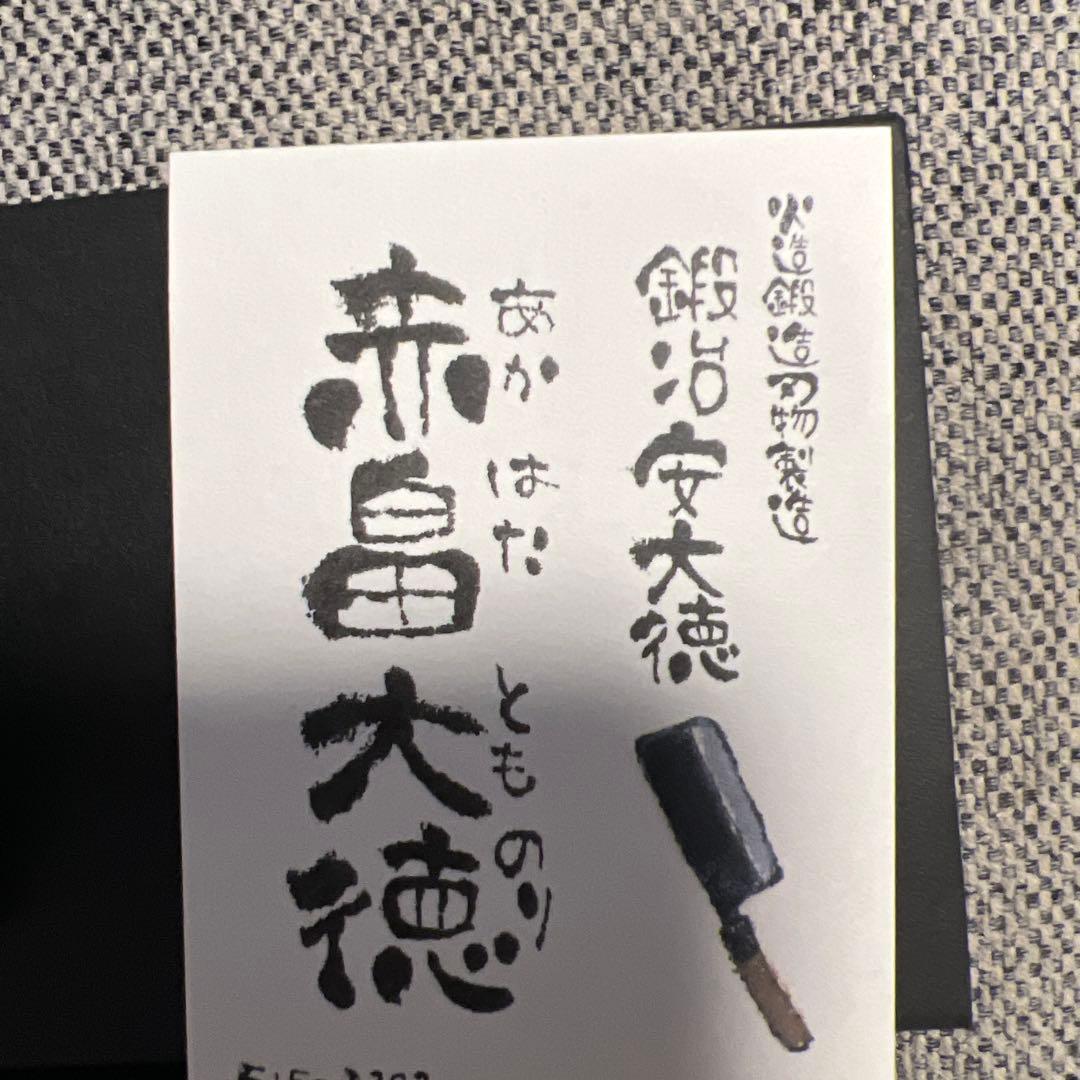 火造鍛造刃物製造
鍛冶安大徳
あかはた とものり
赤畠大徳